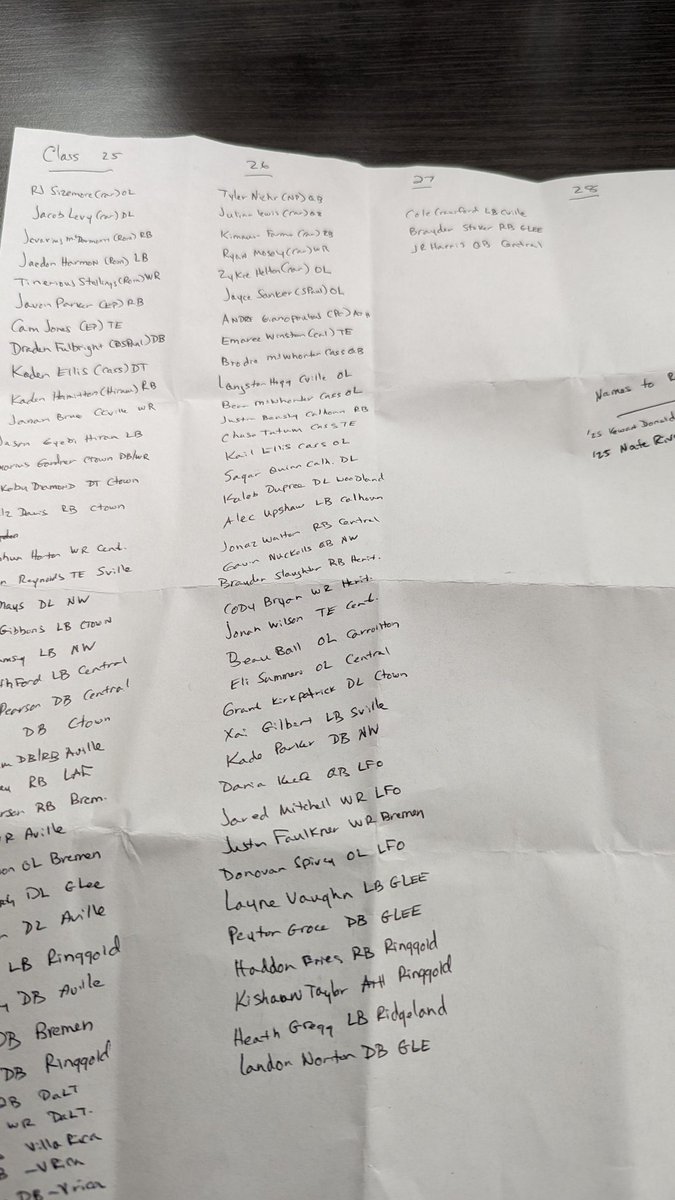 Class 25
RJ Sizemore (Car) OL
Jacob Levy (Car) DL
Jevarius McDermott (Rom) RB
Jaedon Harmon (Rom) LB
Tinerious Stallings (Rom) WR
Javen Parker (EP) RB
Cam Jones (EP) TE
Draden Fulbright (DSPaul) DB
Kaden Ellis (Cass) DT
Kaden Hamilton (Hiram) RB
Janari Cville WR
Hiram LB
Gardner Ctown DB/WR
Koby Diamond DT Ctown
Davis RB Ctown
Horton WR Cent.
Reynolds TE Sville
DL NW
Gibbons LB Ctown
LB NW
Ford LB Central
Pearson DB Central
DB Ctown
DB/RB Aville
RB LAF
RB Brem.
Aville
OL Bremen
DL Glee
Aville
LB Ringgold
DB Aville
DB Bremen
DB Ringgold
DB DaLT
WR DaLT.
Villa Rica
-VRica
DB-Vrica
26
Tyler Niehr (NP) QB
Julian Lewis (Car) QB
Kimnair Farmo (Car) RB
Ryan Mosely (Car) WR
Zykie Helton (Car) OL
Jayce Sanker (SPaul) OL
Andre Gianopoulos (Pe) Ath
Emaree Winston (Cal) TE
Brodie McWhorter Cass QB
Langston Hogg Cville OL
Bear McWhorter Cass OL
Justin Beasley Calhoun RB
Chase Tatum Cass TE
Kail Ellis Cass OL
Sagar Quinn Calh. DL
Kaleb Dupree DL Woodland
Alec Upshaw LB Calhoun
Jonaz Walton RB Central
Gavin Nuckolls QB NW
Brayden Slaughter RB Herit.
Cody Bryan WR Herit.
Jonah Wilson TE Cent.
Beau Ball OL Carrollton
Eli Summers OL Central
Grant Kirkpatrick DL Ctown
Xai Gilbert LB Sville
Kade Parker DB NW
QB LFO
Jared Mitchell WR LFO
Justin Faulkner WR Bremen
Donovan Spivey OL LFO
Layne Vaughn LB GLEE
Peyton Groce DB GLEE
Haddon Fries RB Ringgold
Kishaun Taylor Ath Ringgold
Heath Gregg LB Ridgeland
Landon Norton DB GLE
27
Cole Crawford LB Cville
Brayden Stoker RB GLEE
JR Harris QB Central
28
Names to R
'25 Donald
'25 Nate Riv